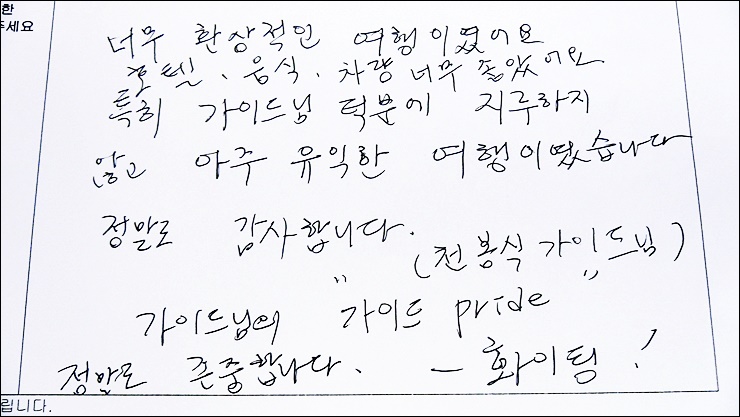 한
주세요
너무 환상적인 여행이였어요
호텔. 음식. 차량 너무 좋았어요
특히 가이드님 덕분에 지루하지
않고 아주 유익한 여행이였습니다
정말로 감사합니다.
(전봉식 가이드님)
가이드님의 "가이드 pride"
정말로 존중합니다. - 화이팅!
립니다.